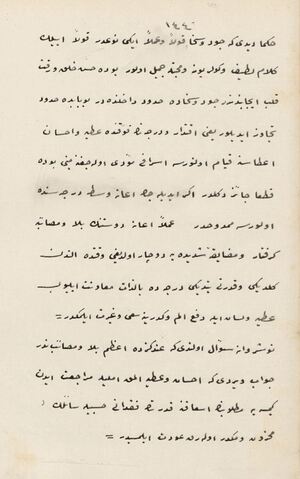 ١٤٤
حكما ديدى كه جود و سخا قولاً و عملاً ايكى نوعدر قولاً ايلك
كلام لطيف و كولر يوز و محبت جميل اولور بوده حسن خلق و رقت
قلب ايجابندندر جود و سخاده حدود داخلنده در بوبابده حدود
تجاوز ايديلور يعنى اقتدار و درجه‌سنك فوقنده عطيه و احسان
اعطاسنه قيام اولنورسه اسرافى مؤدى اوله‌جغندن بوده
قطعا جائز دكلدر اكر ايديله‌جك اعانه وسط درجه‌سنده
اولورسه ممدوحدر عملاً اعانه دوستنك بلا و مصائبه
كرفتار و مضايقهٔ شديده يه دوچار اولديغى وقتده الندن
كلديكى و قدرتى يتديكى درجه‌ده بالذات معاونت ايليوب
عطيه و لسان ايله دفع الم و كدرينه سعى و غيرت ايلمكدر =
نوشرواندن سؤال اولندى كه عندكزده اعظم بلا و مصائب ندر
جواب ويردى كه احسان و عطيه المق اميديله مراجعت ايدن
كيمسه يه مطلوبنك اسعافنه قدرتك فقدانى حسبيله سائلك
محزون و مكدر اوله‌رق عودت ايلمسيدر =